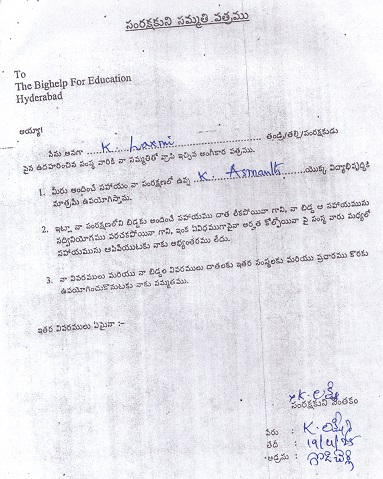 సంరక్షకుని సమ్మతి పత్రము
To
The Bighelp For Education
Hyderabad
అయ్యా!
నేను అనగా ....K. Laxmi.... తండ్రి/తల్లి/సంరక్షకుడు
పైన ఉదహరించిన సంస్థ వారికి నా సమ్మతితో వ్రాసి ఇచ్చిన అంగీకార పత్రము.
1. మీరు అందించే సహాయం నా సంరక్షణలో ఉన్న ..K. Asmanth..యొక్క విద్యాభివృద్ధికి
మాత్రమే ఉపయోగిస్తాను.
2. ఇట్లా నా సంరక్షణలోని బిడ్డకు అందించే సహాయము దాత లేకపోయినా గాని, నా బిడ్డ ఆ సహాయమును
సద్వినియోగము పరచకపోయినా గాని, ఇంక ఏవిధముగానైనా అర్హత కోల్పోయినా పై సంస్థ వారు మధ్యలో
సహాయమును ఆపివేయుటకు నాకు అభ్యంతరము లేదు.
3. నా వివరములు మరియు నా బిడ్డల వివరములు దాతలకు ఇతర సంస్థలకు మరియు ప్రచారము కొరకు
ఉపయోగించుకొనుటకు నాకు సమ్మతము.
ఇతర వివరములు ఏమైనా :-
K. లక్ష్మి
సంరక్షకుని సంతకం
పేరు : K. లక్ష్మి
తేది :
అడ్రసు :